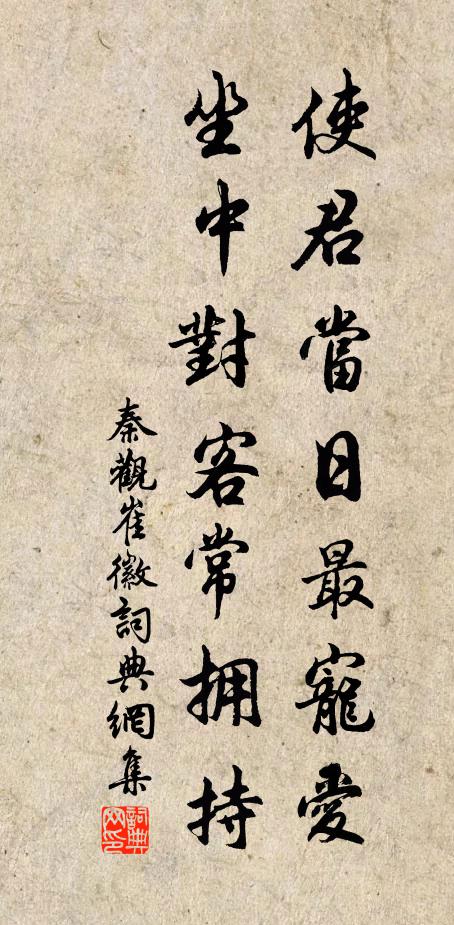 使君當日最寵愛
坐中對客常拥持
秦觀崔徽詞典網集
詞典网印